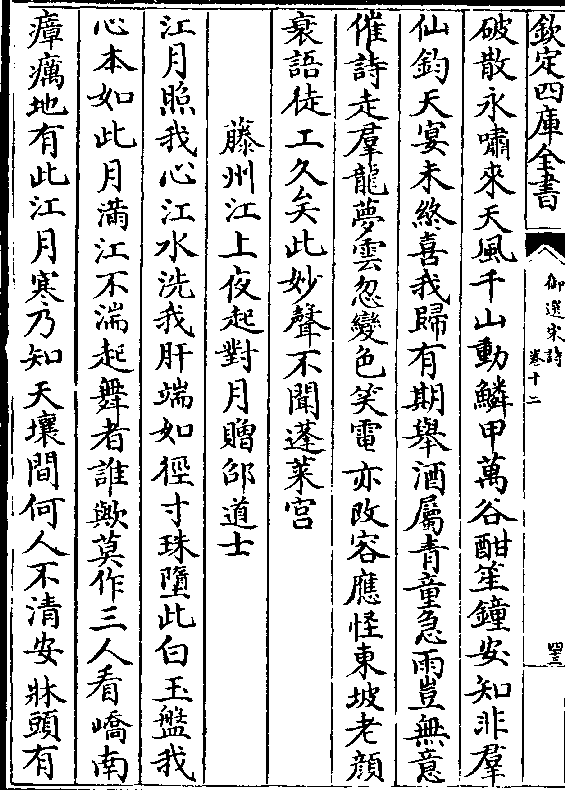 欽定四庫全書
御選宋詩
卷十二
四三
破散永嘯來天風千山動鱗甲萬谷酣笙鐘安知非羣
仙鈞天宴未終喜我歸有期舉酒屬青童急雨豈無意
催詩走羣龍夢雲忽變色笑電亦改容應怪東坡老顔
衰語徒工久矣此妙聲不聞蓬萊宫
藤州江上夜起對月贈邵道士
江月照我心江水洗我肝端如徑寸珠墮此白玉盤我
心本如此月滿江不湍起舞者誰歟莫作三人看嶠南
瘴癘地有此江月寒乃知天壤間何人不清安牀頭有